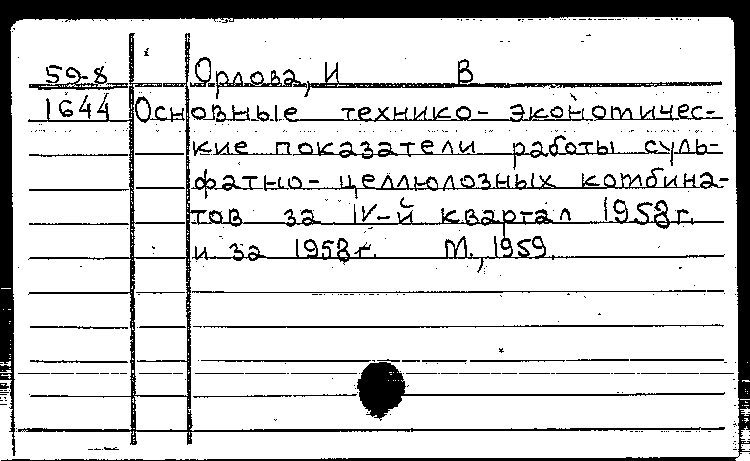 59-8 Орлова, И В
1644 Основные технико-экономичес-
кие показатели работы суль-
фатно-целлюлозных комбина-
тов за IV-й квартал 1958г.
и за 1958г. М., 1959.